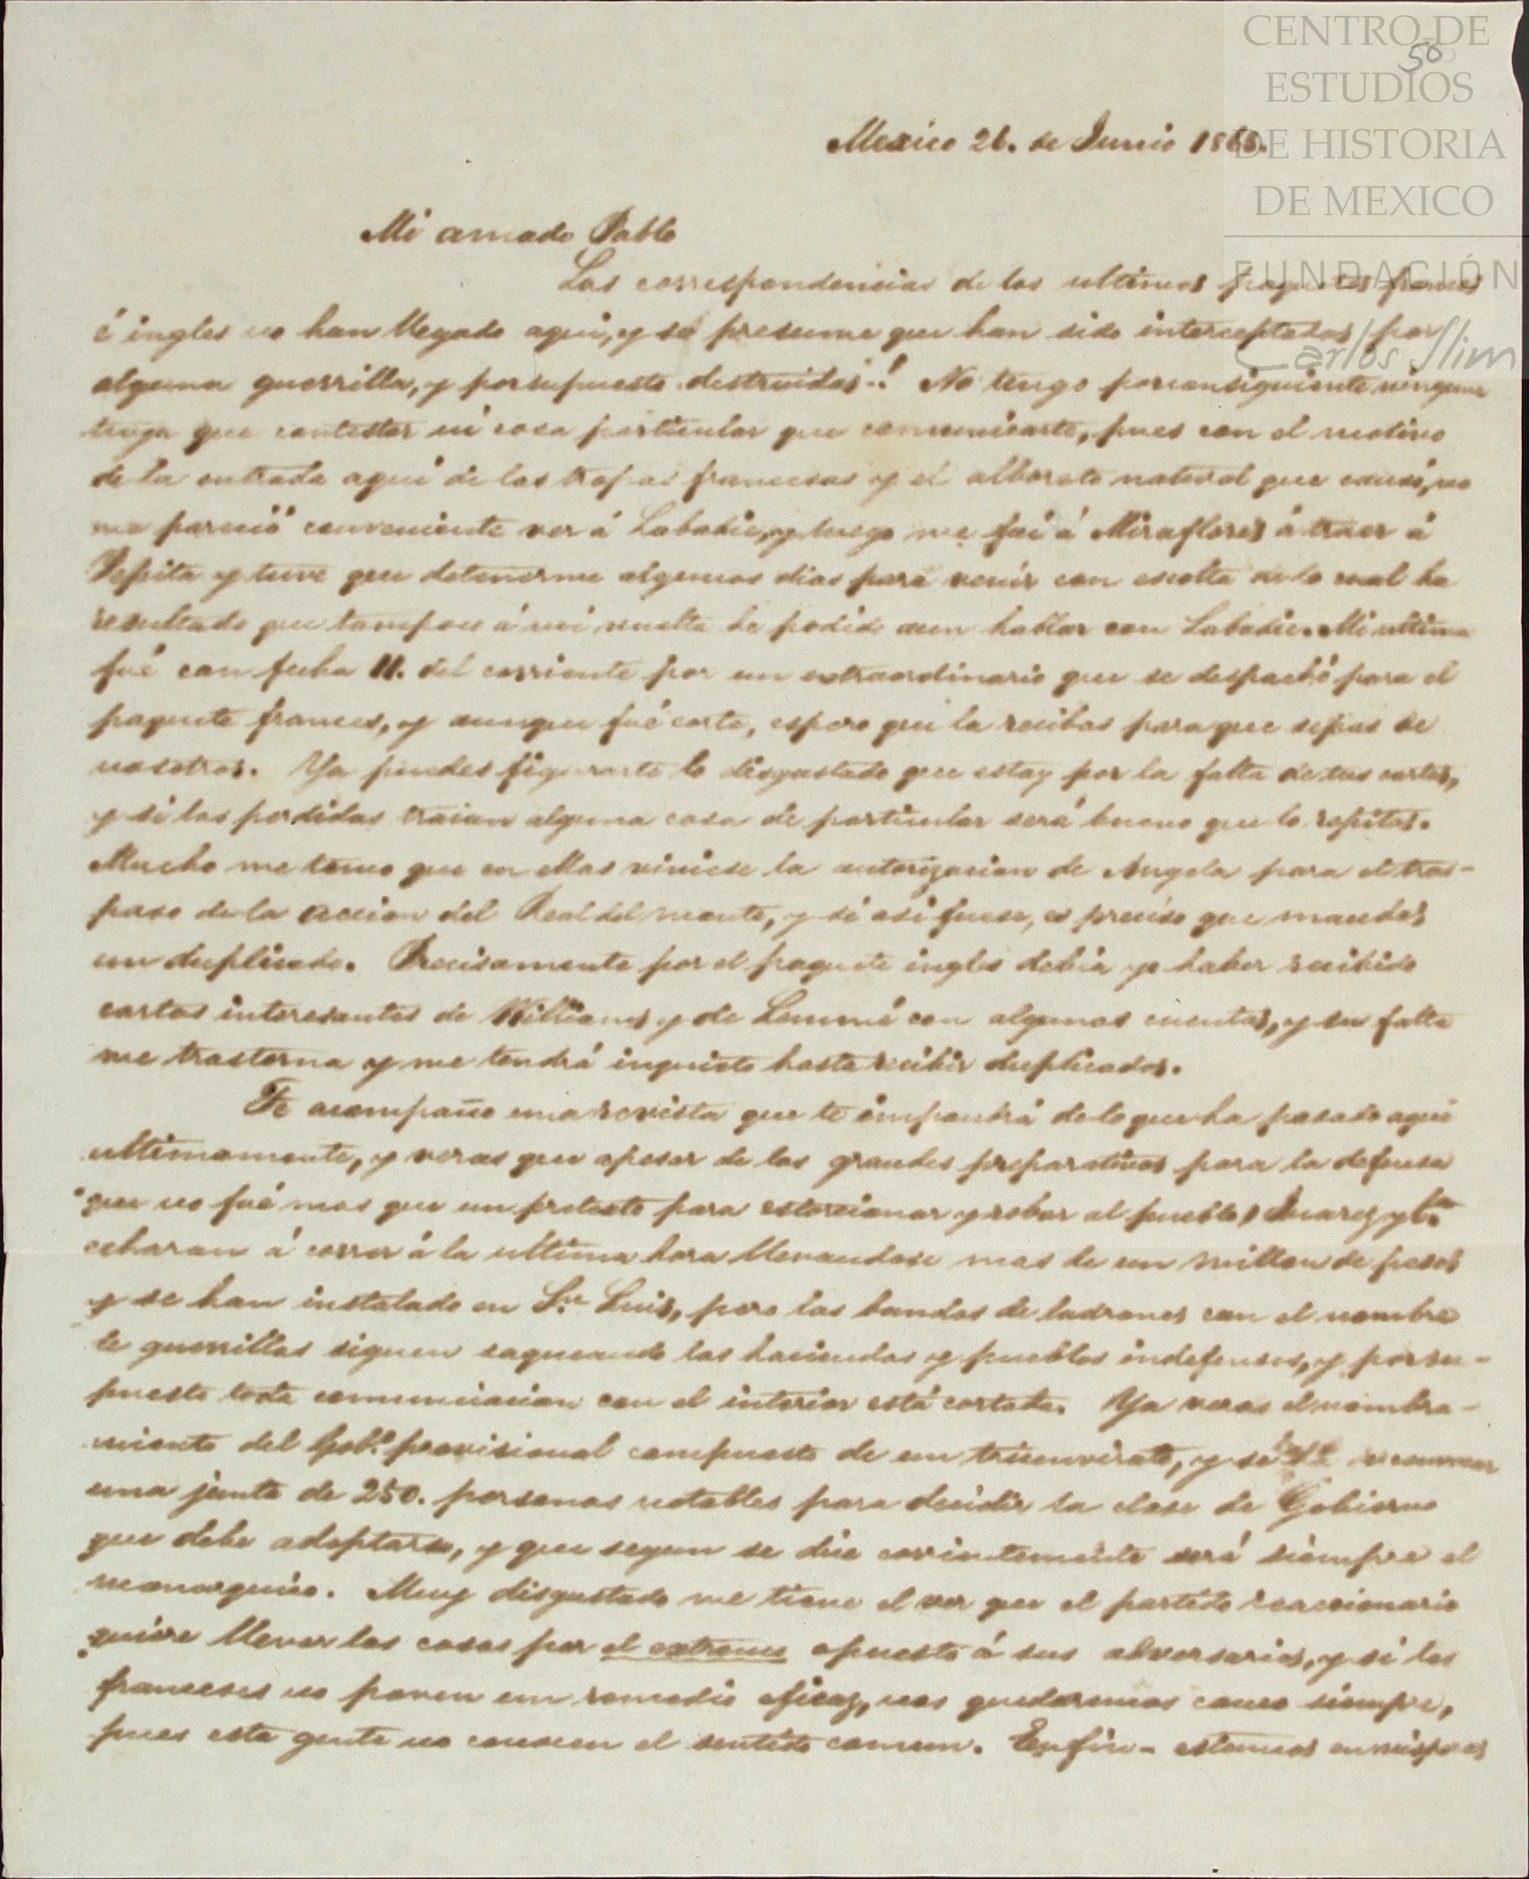 CENTRO DE
ESTUDIOS
DE HISTORIA
DE MEXICO
FUNDACIÓN
Carlos Slim
50
Mexico 26. de Junio 1863.
Mi amado Pablo
Las correspondencias de los ultimos paquetes frances
é ingles no han llegado aqui, y se presume que han sido interceptadas por
alguna guerrilla, y porsupuesto destruidas.! No tengo porconsiguiente ninguna
tuya que contestar ni cosa particular que comunicarte, pues con el motivo
de la entrada aqui de las tropas francesas y el alboroto natural que causó, no
me pareció conveniente ver á Labadie, y luego me fui á Miraflores á traer á
Pepita y tuve que detenerme algunos dias para venir con escolta de lo cual ha
resultado que tampoco á mi vuelta he podido aun hablar con Labadie. Mi ultima
fué con fecha 11. del corriente por un extraordinario que se despachó para el
paquete frances, y aunque fué corta, espero que la recibas para que sepas de
nosotros. Ya puedes figurarte lo disgustado que estoy por la falta de tus cartas,
y si las perdidas traian alguna cosa de particular será bueno que lo repitas.
Mucho me temo que en ellas viniese la autorizacion de Angela para el tras-
paso de la accion del Real del monte, y si asi fuese, es preciso que mandes
un duplicado. Precisamente por el paquete ingles debia yo haber recibido
cartas interesantes de Williams y de Lemmé con algunas cuentas, y su falta
me trastorna y me tendrá inquieto hasta recibir duplicados.
Te acompaño una revista que te impondrá de lo que ha pasado aqui
ultimamente, y veras que apesar de los grandes preparativos para la defensa
que no fué mas que un pretesto para estorcionar y robar al pueblo, Juarez y Ca.
echaran á correr á la ultima hora llevandose mas de un millon de pesos
y se han instalado en Sn. Luis, pero las bandas de ladrones con el nombre
de guerrillas siguen saqueando las haciendas y pueblos indefensos, y porsu-
puesto toda comunicacion con el interior está cortada. Ya veras el nombra-
miento del Gobo. provisional compuesto de un triunvirato, y se va á convocar
una junta de 250. personas notables para decidir la clase de Gobierno
que debe adoptarse, y que segun se dice corrientemente será siempre el
monarquico. Muy disgustado me tiene el ver que el partido reaccionario
quiere llevar las cosas por el extremo opuesto á sus adversarios, y si los
franceses no ponen un remedio eficaz, nos quedaremos como siempre,
pues esta gente no conocen el sentido comun. Enfin - estamos en visperas